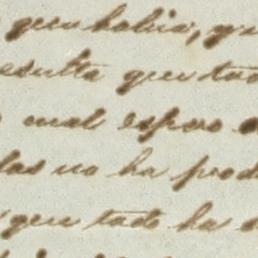 que habia, q
esulta que tod
cual espero
las no ha prod
que todo ha